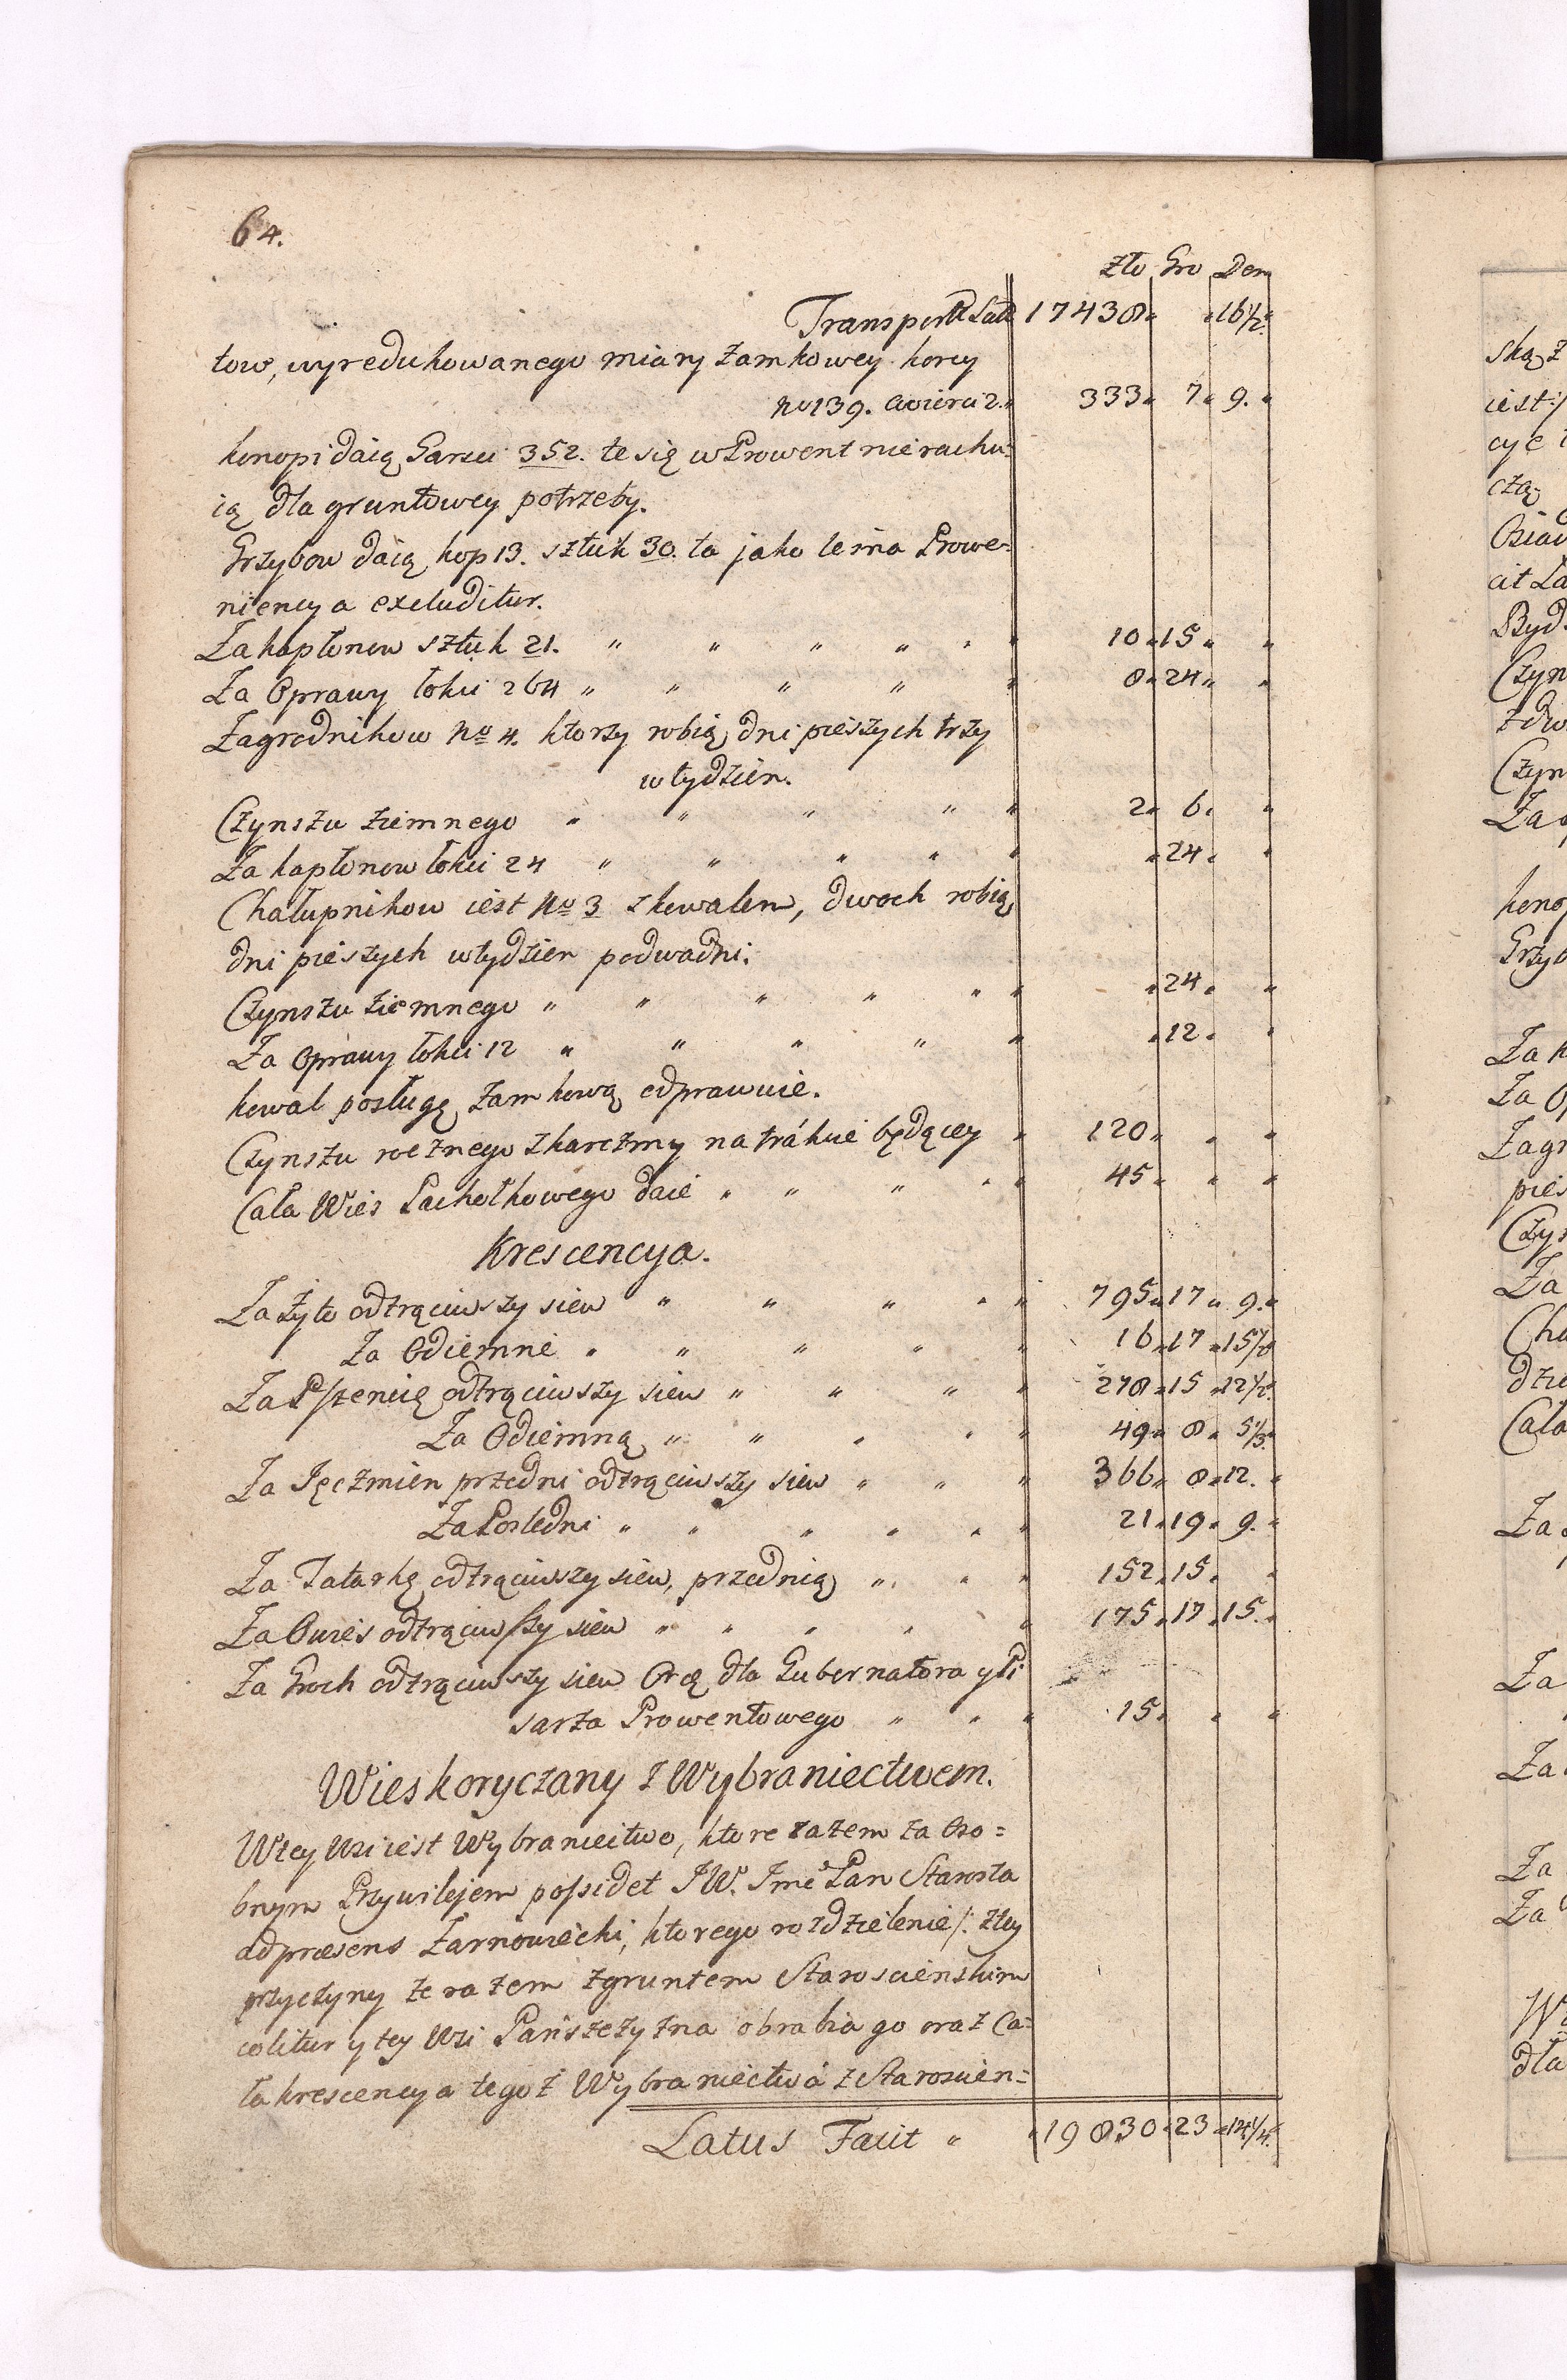 64.
Zło Gro Den
Transport Lat 17438 " " 16½
tow, wyredukowanego miary zamkowey korcy
No 139. cwierci 2. " 333 " 7 " 9. "
konopi daią Garncy 352. te się w Prowent nie rachu=
ią dla gruntowey potrzeby.
Grzybow daią kop 13. sztuk 30. ta jako letnia Prowe=
niencya excluditur.
Za kapłonow sztuk 21. " " " " " " 10 " 15 " "
Za Oprawy łokci 264 " " " " " 8 " 24 " "
Zagrodnikow No 4. ktorzy robią dni pieszych trzy
w tydzien.
Czynszu ziemnego " " " " " 2 " 6 " "
Za kapłonow łokci 24 " " " " " " 24 " "
Chałupnikow iest No 3 z kowalem, dwoch robią
dni pieszych w tydzien po dwa dni.
Czynszu ziemnego " " " " " " " 24 " "
Za Oprawy łokci 12 " " " " " " 12 " "
kowal posługę zamkową odprawuie.
Czynszu rocznego z karczmy na trákcie będącey " 120 " " "
Cała Wies Pachołkowego daie " " " " " 45 " " "
Krescencya.
Za Zyto odtrąciwszy siew " " " " " 795 " 17 " 9. "
Za Odiemne " " " " " 16 " 17 " 15⅞
Za Pszenicę odtrąciwszy siew " " " " 278 " 15 " 12½
Za Odiemną " " " " " 49 " 8 " 5⅓
Za Jęczmien przedni odtrąciwszy siew " " " 366 " 8 " 12. "
Za Posledni " " " " " " 21 " 19 " 9. "
Za Tatarkę odtrąciwszy siew, przednią " " " 152 " 15 " "
Za Owies odtrąciwszy siew " " " " " 175 " 17 " 15. "
Za Groch odtrąciwszy siew Orą dla Gubernatora y Pi
sarza Prowentowego " " " 15 " " "
Wies koryczany z Wybraniectwem.
W tey Wsi iest Wybraniectwo, ktore razem za Oso=
bnym Przywilejem possidet JW. Jmć Pan Starosta
ad præsens Zarnowiecki, ktorego rozdzielenie /: z tey
przyczyny ze razem z gruntem Staroscienskim
colitur y tey Wsi Pańszczyzna obrabia go oraz Ca=
ła krescencya tegoż Wybraniectwá z Staroscien=
Latus Facit " " 19830 " 23 " 14¼.
ską z
iest /
cye
czą
Osiad
cit La
Bydł
Czyn
z dw
Czyn
Za
kono
Grzyb
Za k
Za O
Zagr
pies
Czyn
Za
Cha
dzie
Cała
Za
Za
Za
Za
Za
W
dla